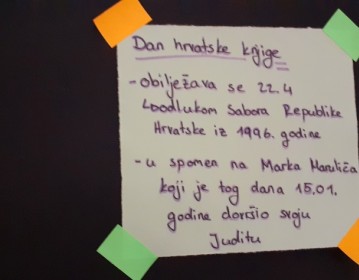 Dan hrvatske knjige
- obilježava se 22.4
Loodlukom Sabora Republike
Hrvatske iz 1996. godine
- u spomen na Marka Marulića
koji je tog dana 1501.
godine dovršio svoju
Juditu